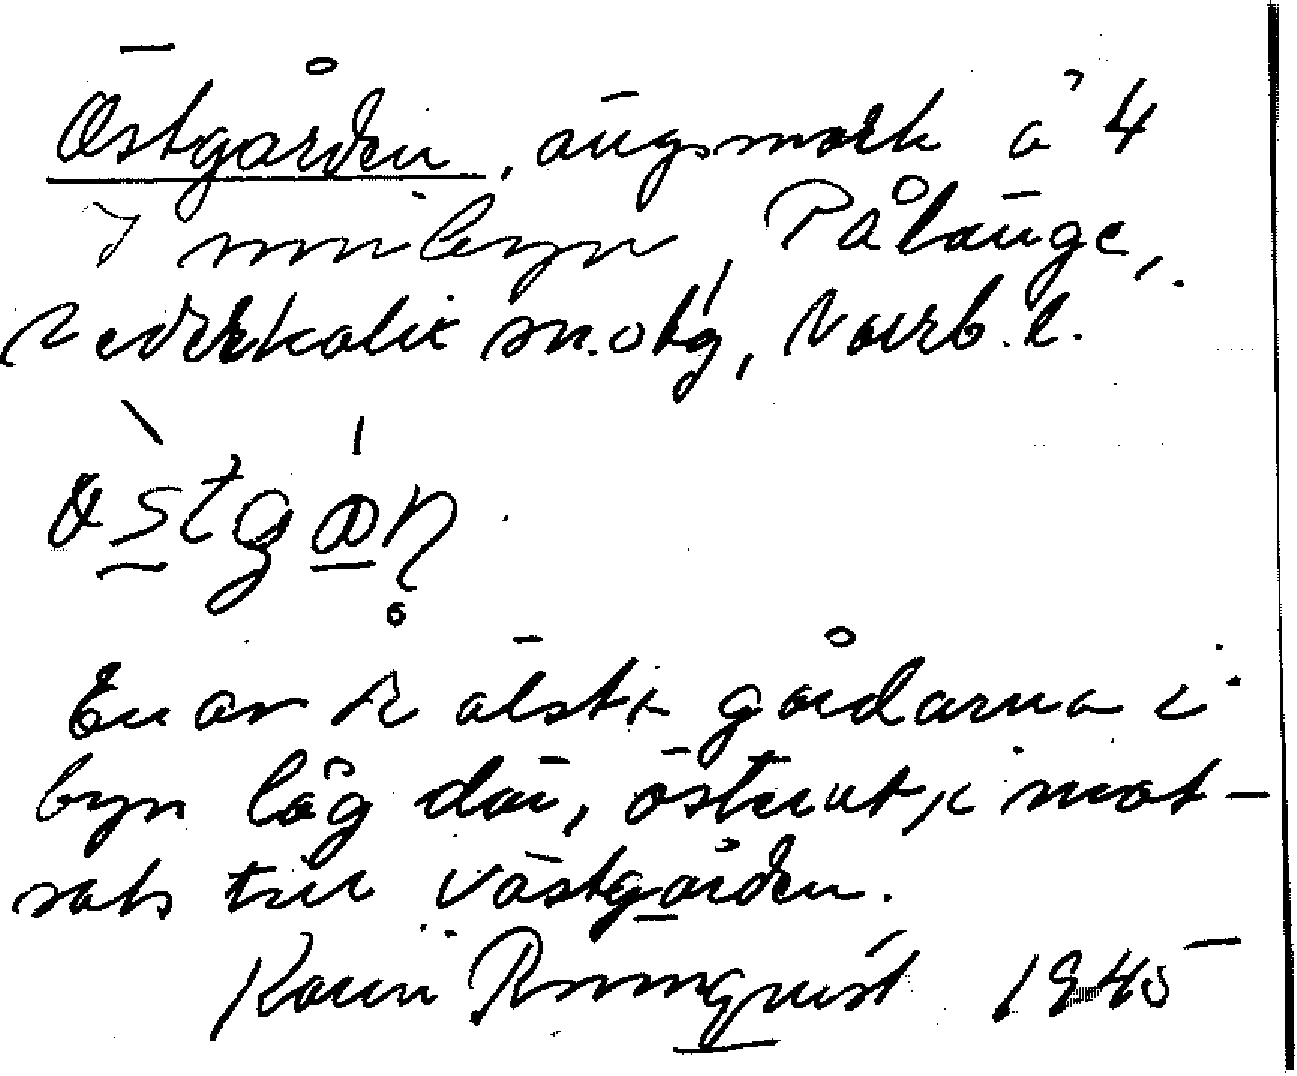 Östgården, ängsmark å 4
I innibyn, Pålänge,
Nederkalix sn. o tg, Norrb. l.
En av de älsta gårdarna i
byn låg där, österut, i mot-
sats till Västgården.
Karin Runnquist 1945